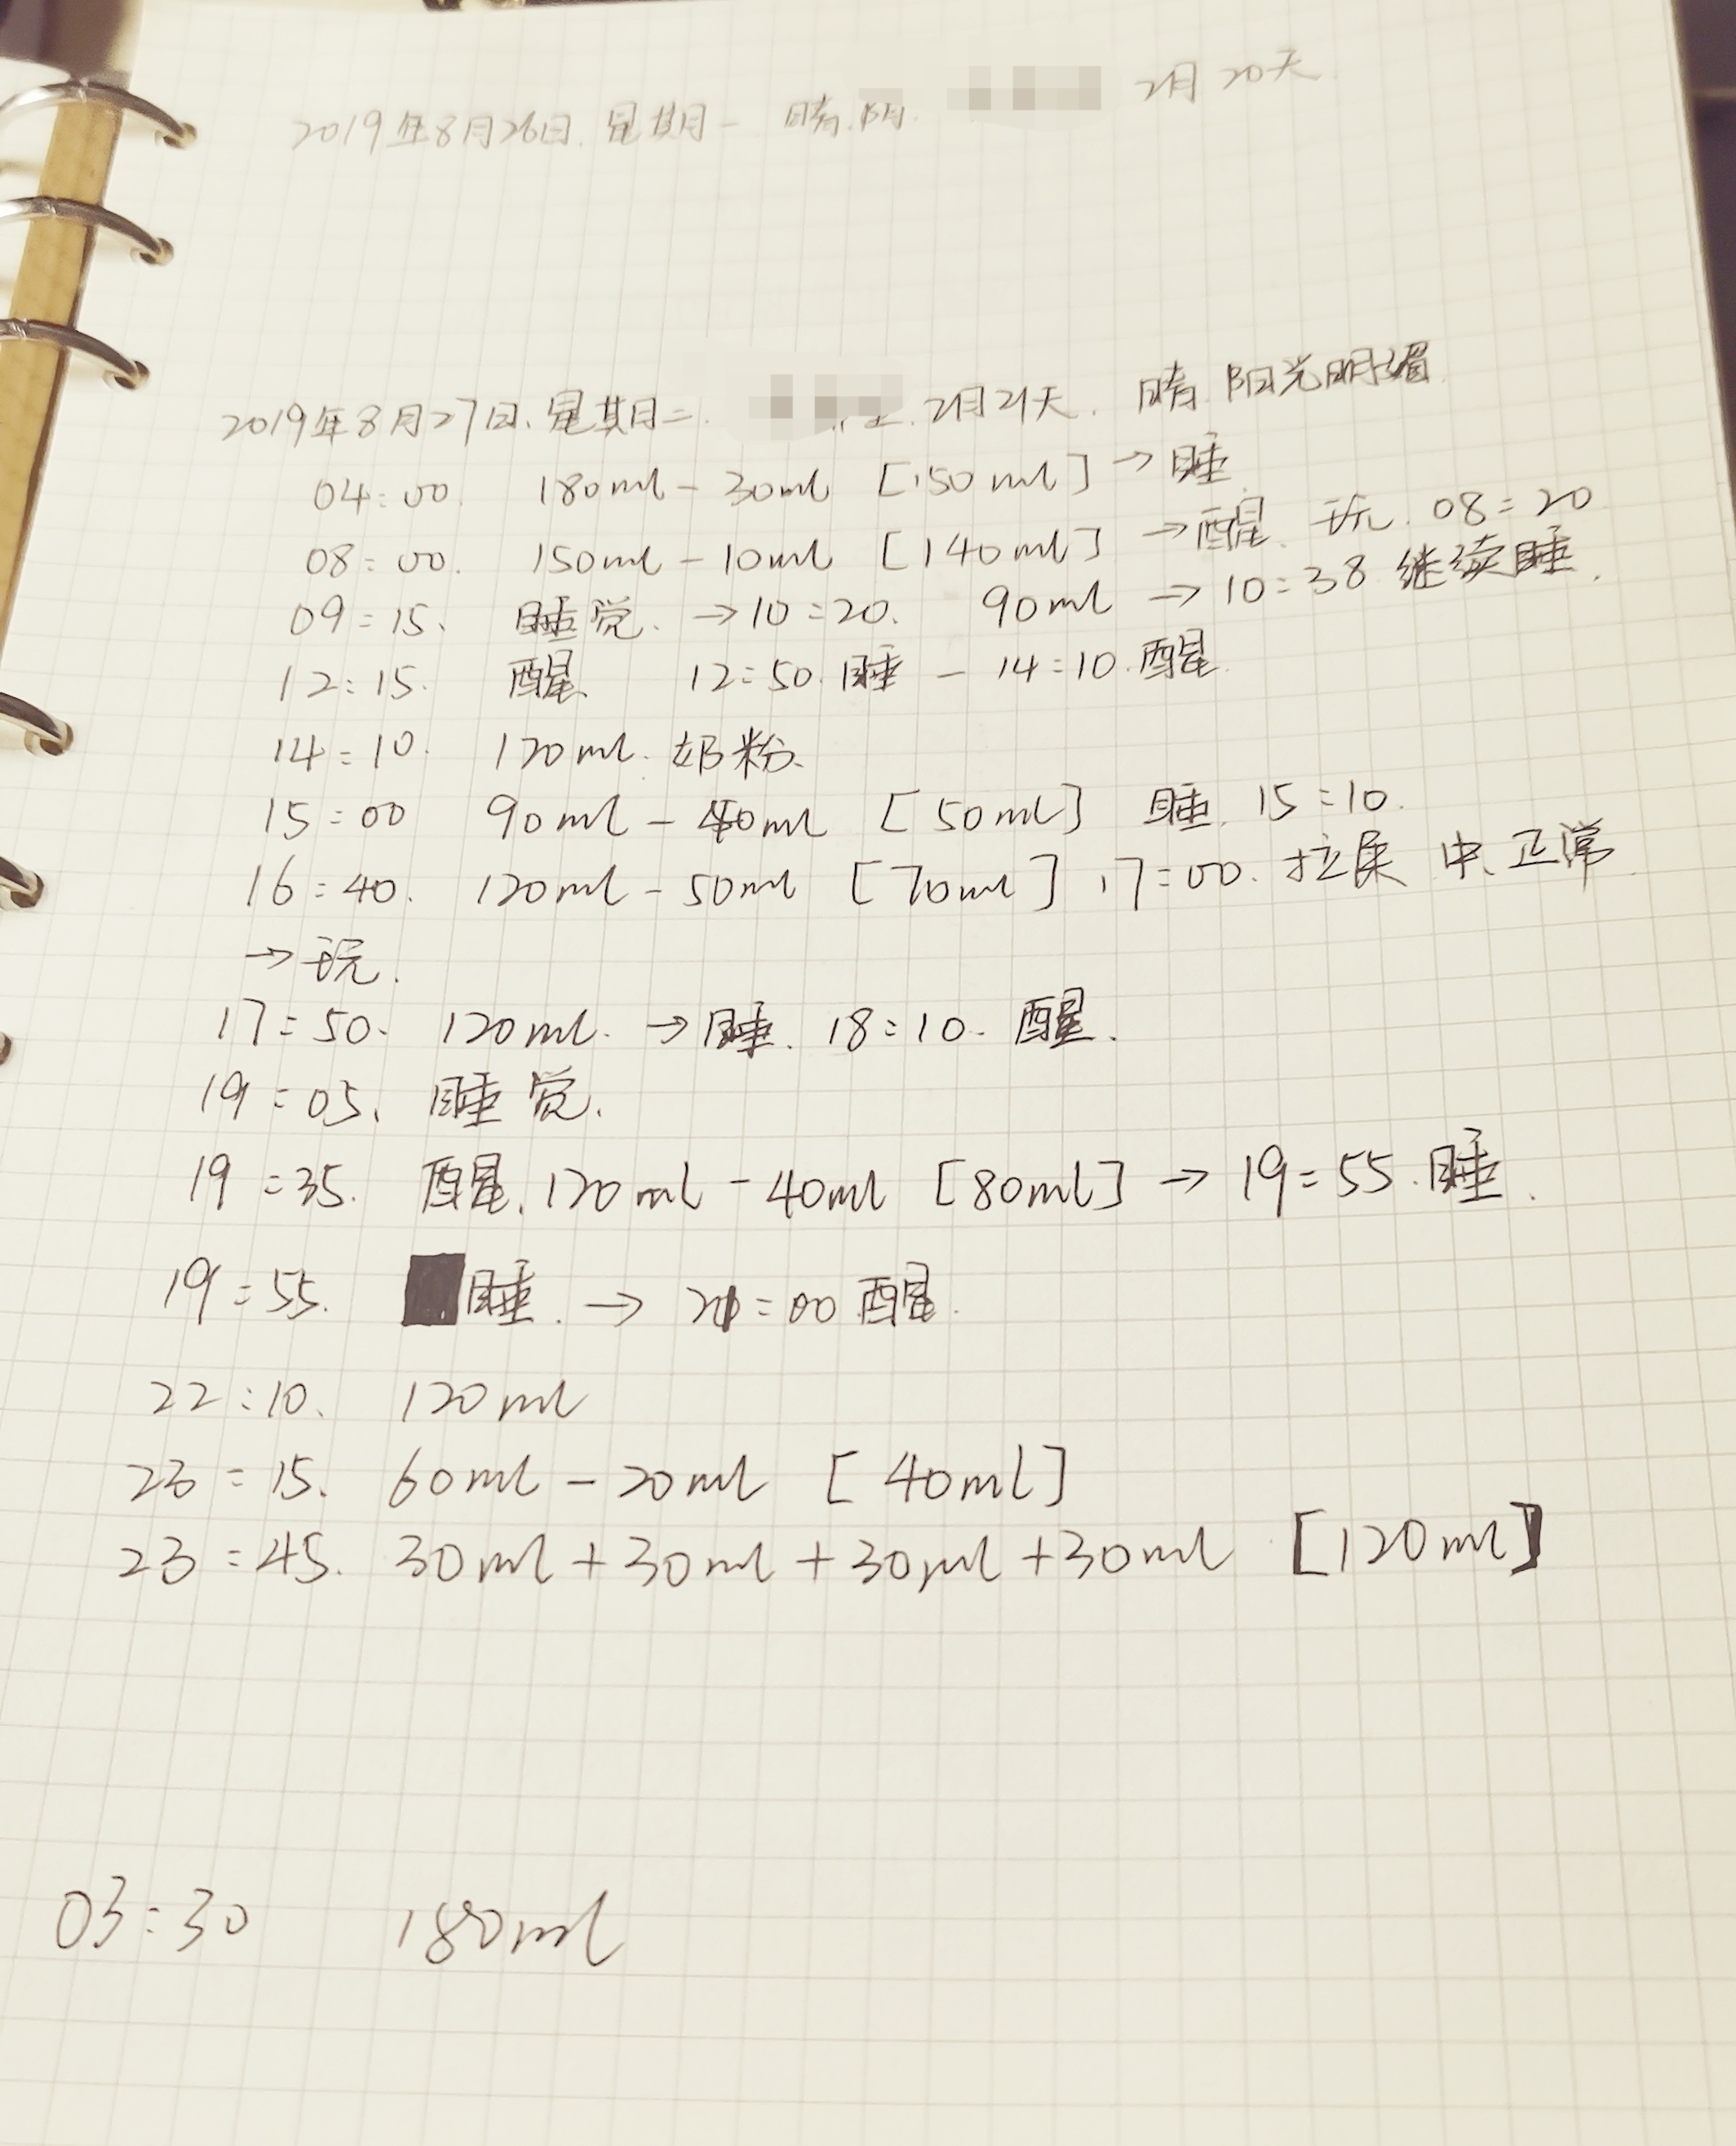 2019年8月26日. 星期一 晴.阴. 2月20天
2019年8月27日. 星期二. 2月21天. 晴 阳光明媚.
04:00. 180ml - 30ml [150ml] → 睡.
08:00. 150ml - 10ml [140ml] → 醒. 玩. 08:20
09:15. 睡觉. → 10:20. 90ml → 10:38 继续睡.
12:15. 醒. 12:50. 睡 - 14:10. 醒.
14:10. 120ml. 奶粉.
15:00 90ml - 40ml [50ml] 睡. 15:10.
16:40. 120ml - 50ml [70ml] 17:00. 拉尿 中. 正常.
→ 玩.
17:50. 120ml. → 睡. 18:10. 醒.
19:05. 睡觉.
19:35. 醒. 120ml - 40ml [80ml] → 19:55. 睡.
19:55. 睡. → 21:00 醒.
22:10. 120ml
23:15. 60ml - 20ml [40ml]
23:45. 30ml + 30ml + 30ml + 30ml [120ml]
03:30 180ml